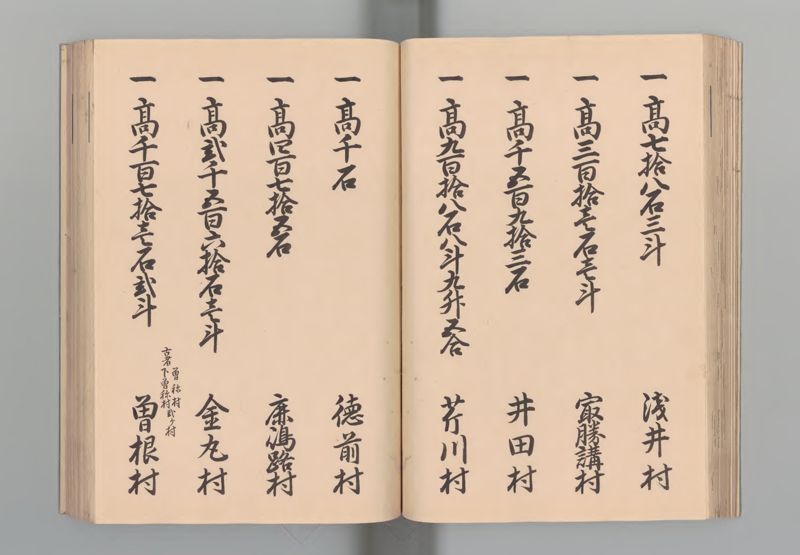 一 高七拾八石三斗 浅井村
一 高三百拾壱石壱斗 冣勝講村
一 高千五百九拾三石 井田村
一 高九百拾八石八斗九升五合 芹川村
一 高千石 徳前村
一 高四百七拾五石 鹿嶋路村
一 高弐千五百六拾石壱斗 金丸村
一 高千百七拾壱石弐斗 曽根村
曽祢村
古者下曽祢村弐ヶ村